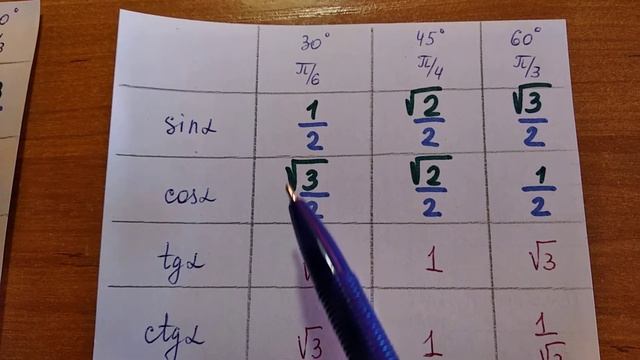 30° 45° 60°
π/6 π/4 π/3
sinα 1/2 √2/2 √3/2
cosα √3/2 √2/2 1/2
tgα 1 √3
ctgα √3 1 1/√3